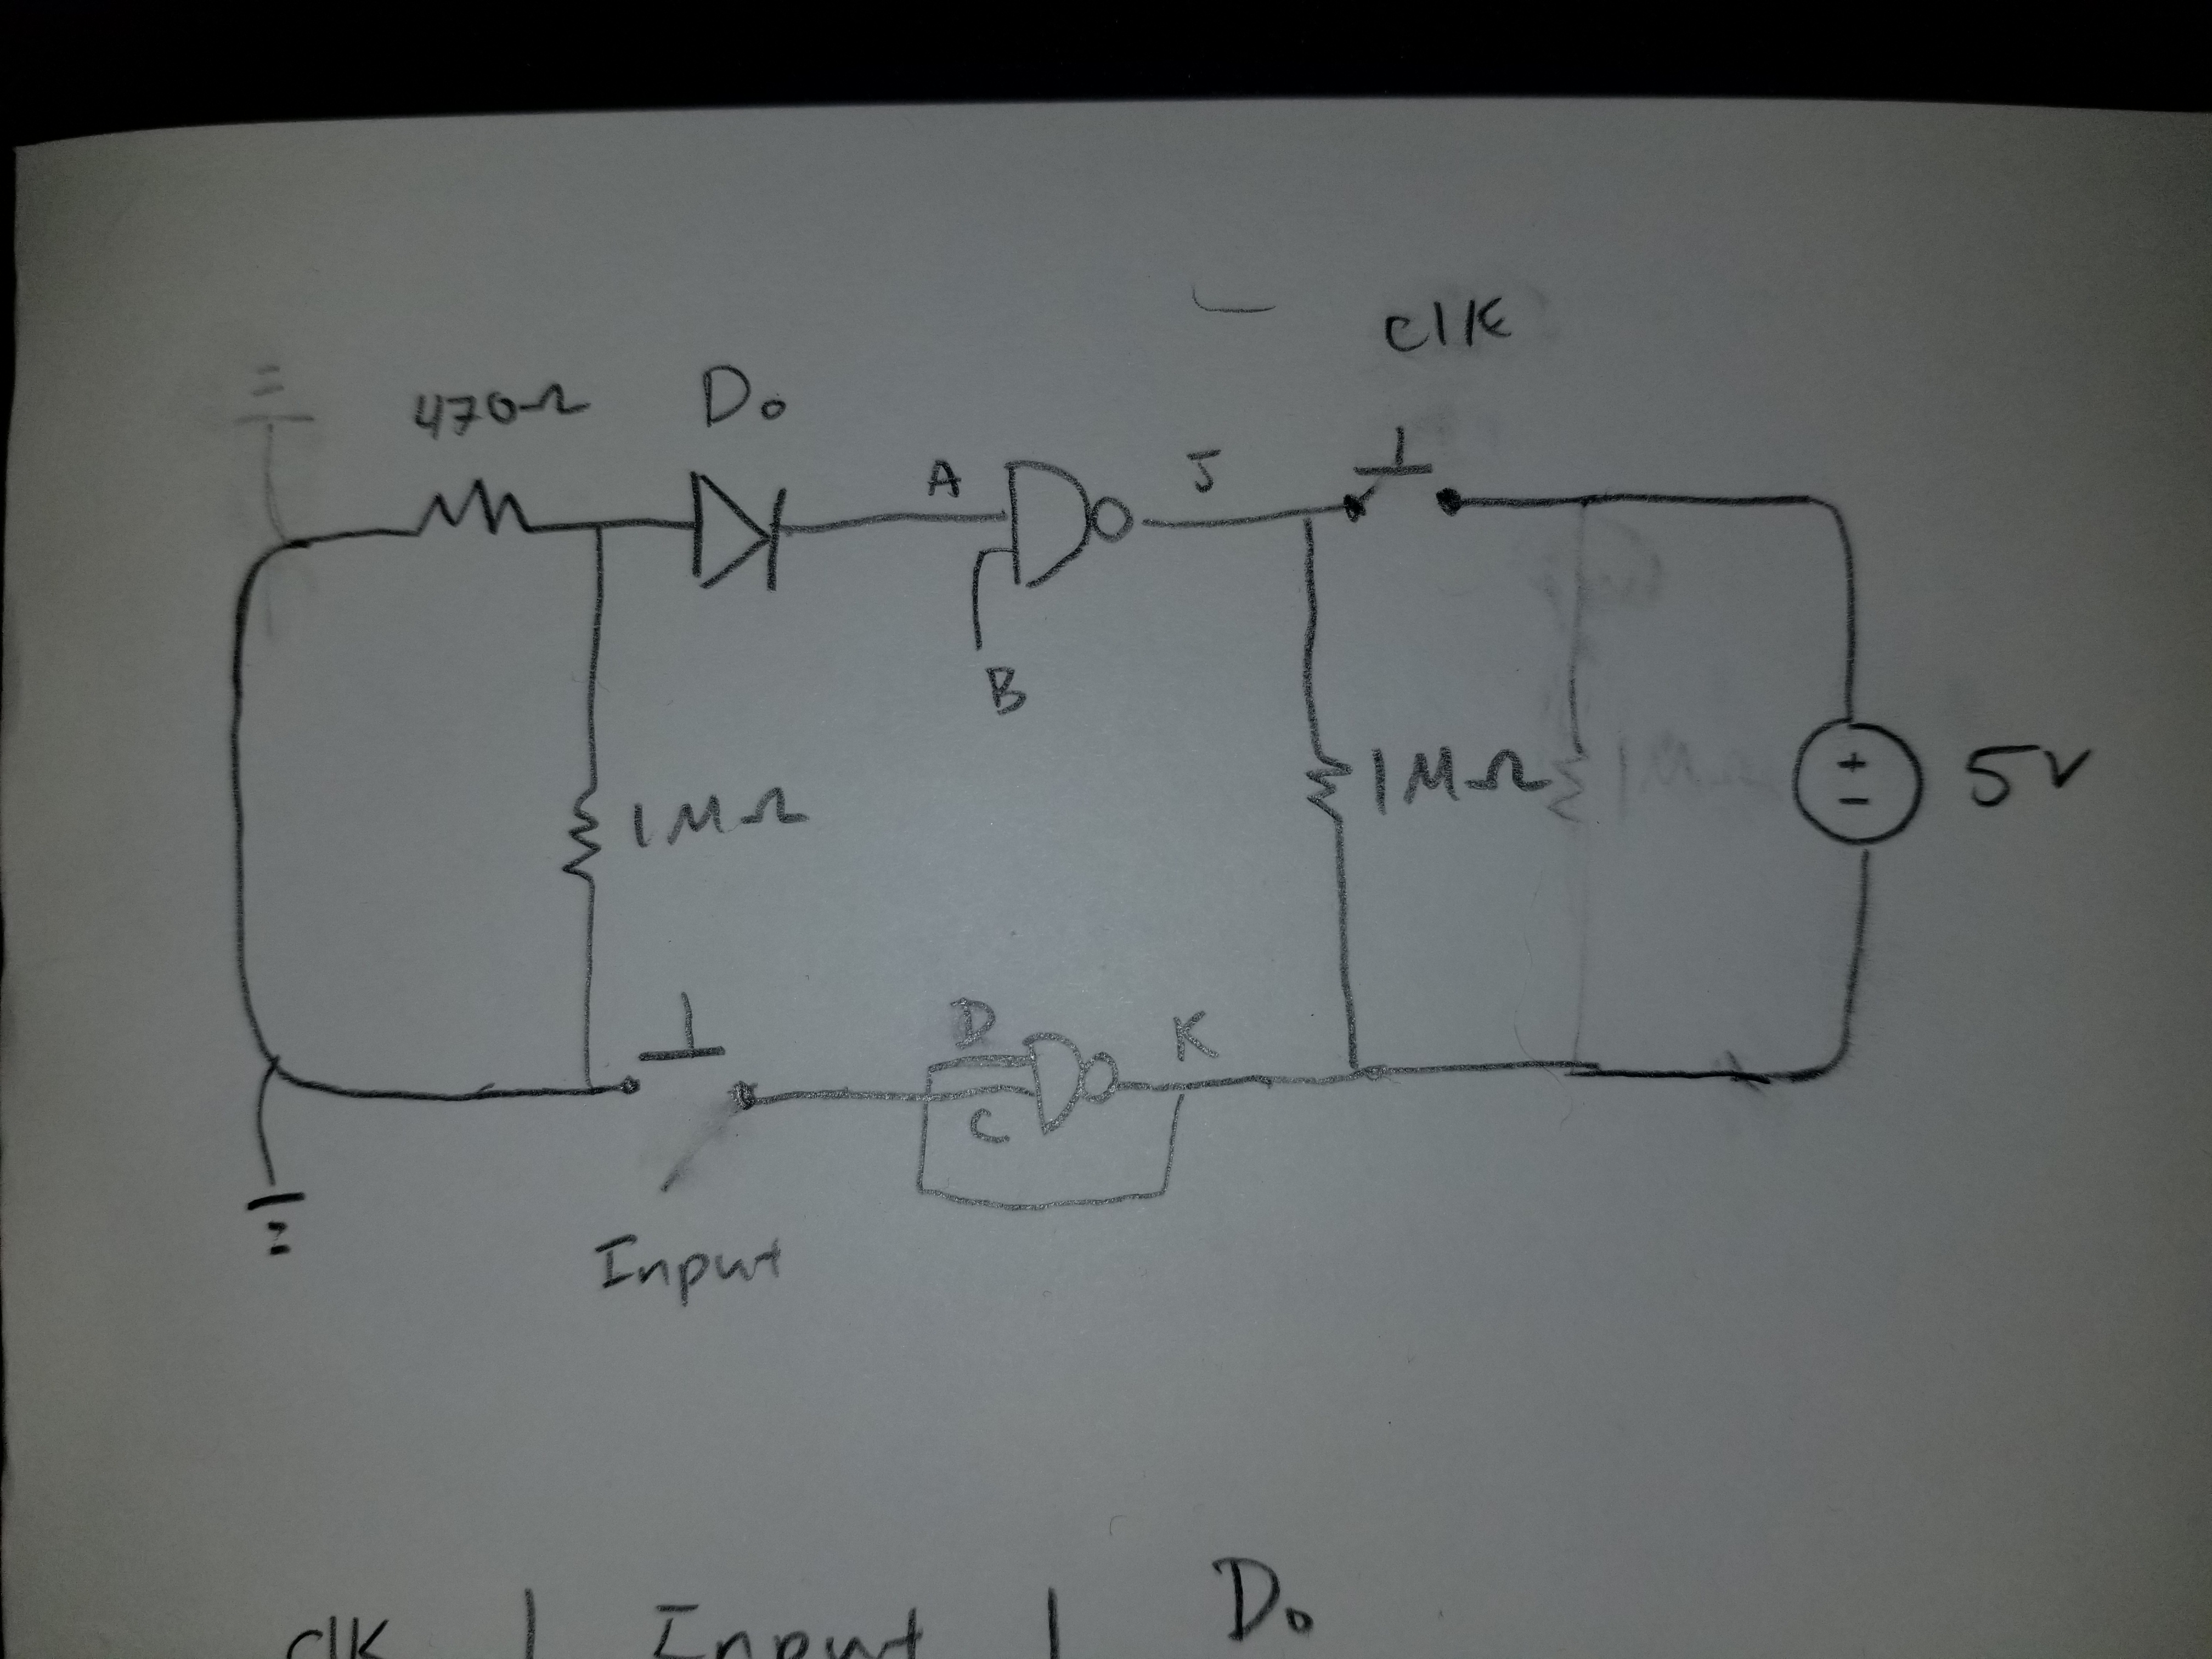 clk
470Ω D₀
A J
B
1MΩ 1MΩ + - 5V
D K
C
Input
clk | Input | D₀